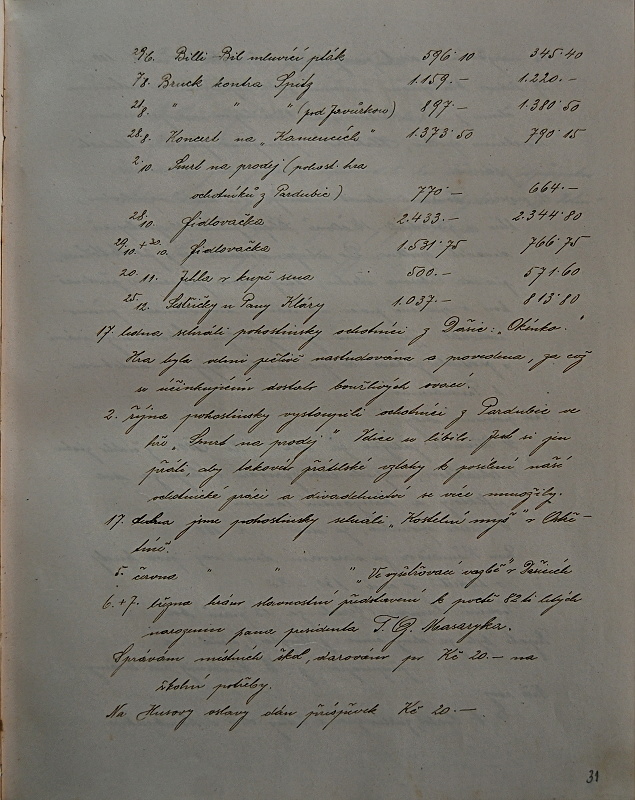 29/6. Billi Bil mluvící pták 596·10 345·40
7/8. Bruck kontra Spitz 1.159.— 1.220.—
21/8. " " " (pod Javůrkou) 897·— 1.380·50
28./8. Koncert na „Kamencích" 1.373·50 790·15
2./10. Smrt na prodej (pohost. hra
ochotníků z Pardubic) 770·— 664.—
28./10. Fidlovačka 2.433.— 2.344·80
29./10. + 30./10. Fidlovačka 1.531·75 766·75
20./11. Jehla v kupě sena 500.— 571·60
25./12. Sestřičky u Panny Kláry 1.037.— 813·80
17. ledna sehráli pohostinsky ochotníci z Dašic: „Okénko."
Hra byla velmi pečlivě nastudována a povedena, za což
se účinkujícím dostalo bouřlivých ovací.
2. října pohostinsky vystoupili ochotníci z Pardubic ve
hře „Smrt na prodej." Velice se líbilo. Jest si jen
přáti, aby takové přátelské vztahy k posílení naší
ochotnické práci a divadelnictví se více množily.
17. dubna jsme pohostinsky sehráli „Kostelní myš" v
5. června " " „Ve vyšetřovací vazbě" v Dašicích
6. + 7. března hráno slavnostní představení k poctě 82ti letých
narozenin pana presidenta T. G. Masaryka.
Správám místních škol, darováno po Kč 20.— na
školní potřeby.
Na Husovy oslavy dán příspěvek Kč 20.—
31